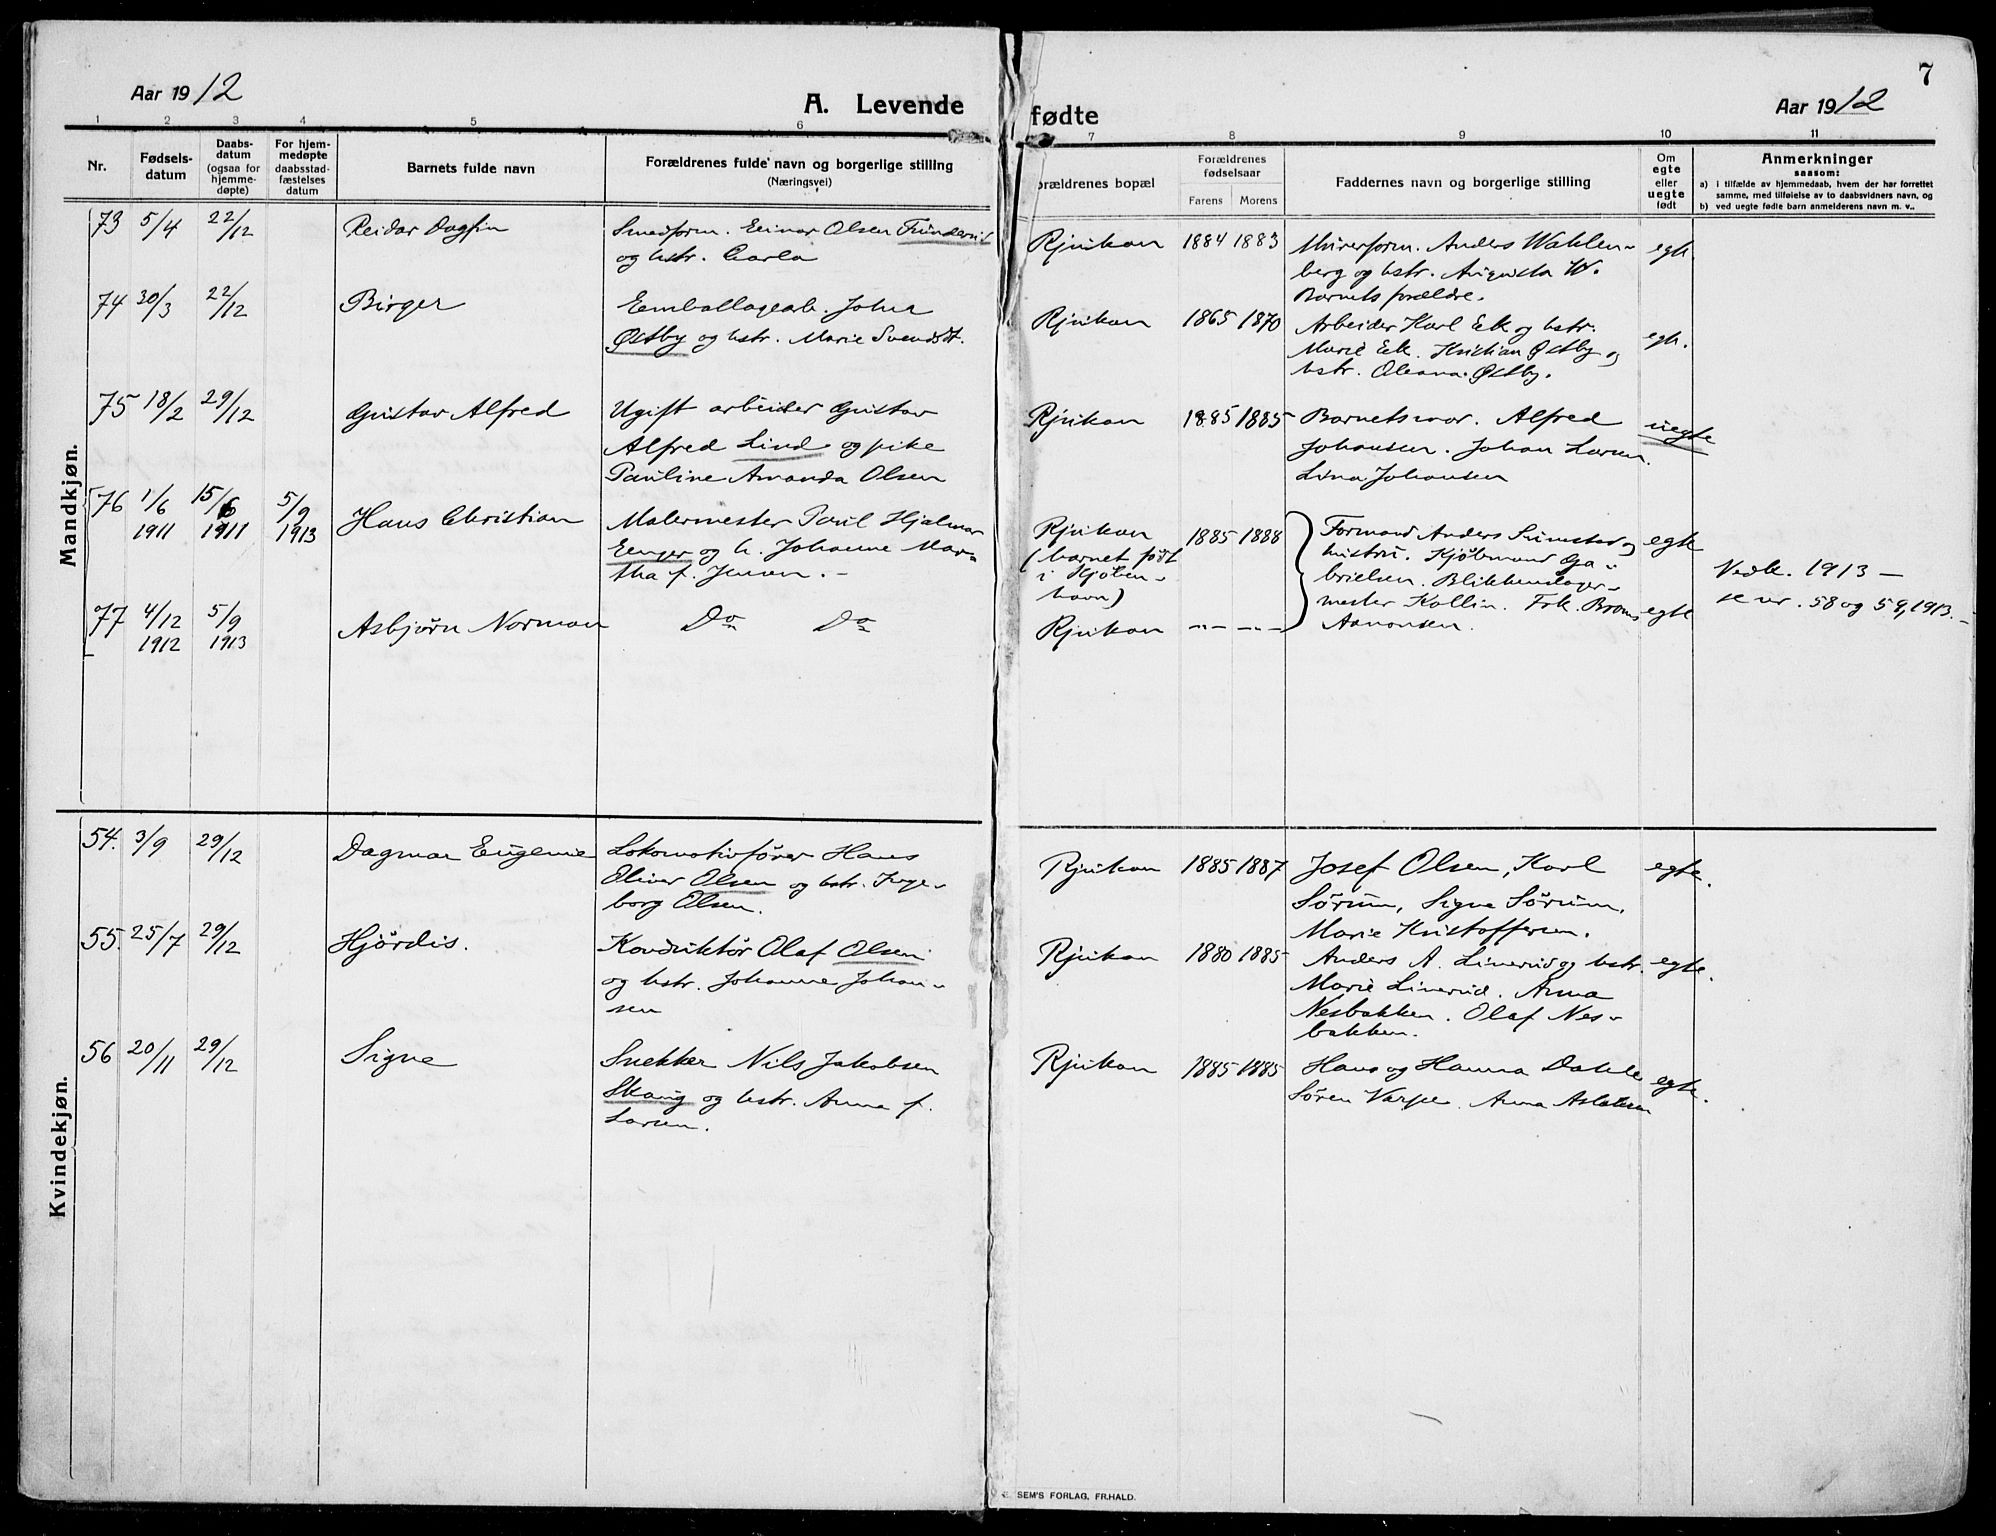 Aar 1912
A. Levende
fødte
Aar 1912
7
1 2 3 4 5 6 7 8 9 10 11
Nr.
Fødsels-
datum
Daabs-
datum
(ogsaa for
hjemme-
døpte)
For hjem-
medøpte
daabsstad-
fæstelses
datum
Barnets fulde navn
Forældrenes fulde navn og borgerlige stilling
(Næringsvei)
orældrenes bopæl
Forældrenes
fødselsaar
Farens Morens
Faddernes navn og borgerlige stilling
Om
egte
eller
uegte
født
Anmerkninger
saasom:
a) i tilfælde av hjemmedaab, hvem der har forrettet
samme, med tilføielse av to daabsvidners navn, og
b) ved uegte fødte barn anmelderens navn m. v..
Mandkjøn.
73 5/4 22/12 Reidar Dagfin
Smedform. Einar Olsen
og hstr. Carla
Rjukan 1884 1883
Murerform. Anders Wahlen-
berg og hstr. Augusta W.
Barnets forældre.
egte
74 30/3 22/12 Birger
Emballagearb. Johan
Østby og hstr. Marie Svendsdt.
Rjukan 1865 1870
Arbeider Karl Eek og hstr.
Marie Eek. Kristian Østby og
hstr. Oleana Østby.
egte.
75 18/2 29/12 Gustav Alfred
Ugift arbeider Gustav
Alfred Lind og pike
Pauline Amanda Olsen
Rjukan 1885 1885
Barnets mor. Alfred
Johansen. Johan Larsen.
Lina Johansen
uegte
76 1/6 1911 15/6 1911 5/9 1913 Hans Christian
Malermester Poul Hjalmar
Eenger og h. Johanne Mar-
tha f. Jensen. -
Rjukan
(barnet født
i Kjøben-
havn)
1885 1888
Formand Anders og
hustru. Kjøbmand Ga-
brielsen. Blikkenslager-
mester Kollin. Frk.
Aanonsen.
egte
Vedk. 1913 -
se nr. 58 og 59, 1913. -
77 4/12 1912 5/9 1913 Asbjørn Norman
Do Do
Rjukan -"- -"-
egte
Kvindekjøn.
54. 3/9 29/12 Dagmar Eugenie
Lokomotivfører Hans
Oliver Olsen og hstr. Inge-
borg Olsen.
Rjukan 1885 1887
Josef Olsen, Karl
Sørum, Signe Sørum,
Marie Kristoffersen.
egte.
55. 25/7 29/12 Hjördis.
Konduktør Olaf Olsen
og hstr. Johanne Johan-
sen
Rjukan 1880 1885
Anders A. Linerud og hstr.
Marie Linerud. Anna
Nesbakken. Olaf Nes-
bakken.
egte.
56 20/11 29/12 Signe
Snekker Nils Jakobsen
Skaug og hstr. Anna f.
Larsen.
Rjukan 1885 1885
Hans og Hanna Dahle
Søren Varpe. Anna Aslaksen
egte.
SEM'S FORLAG, FR.HALD.